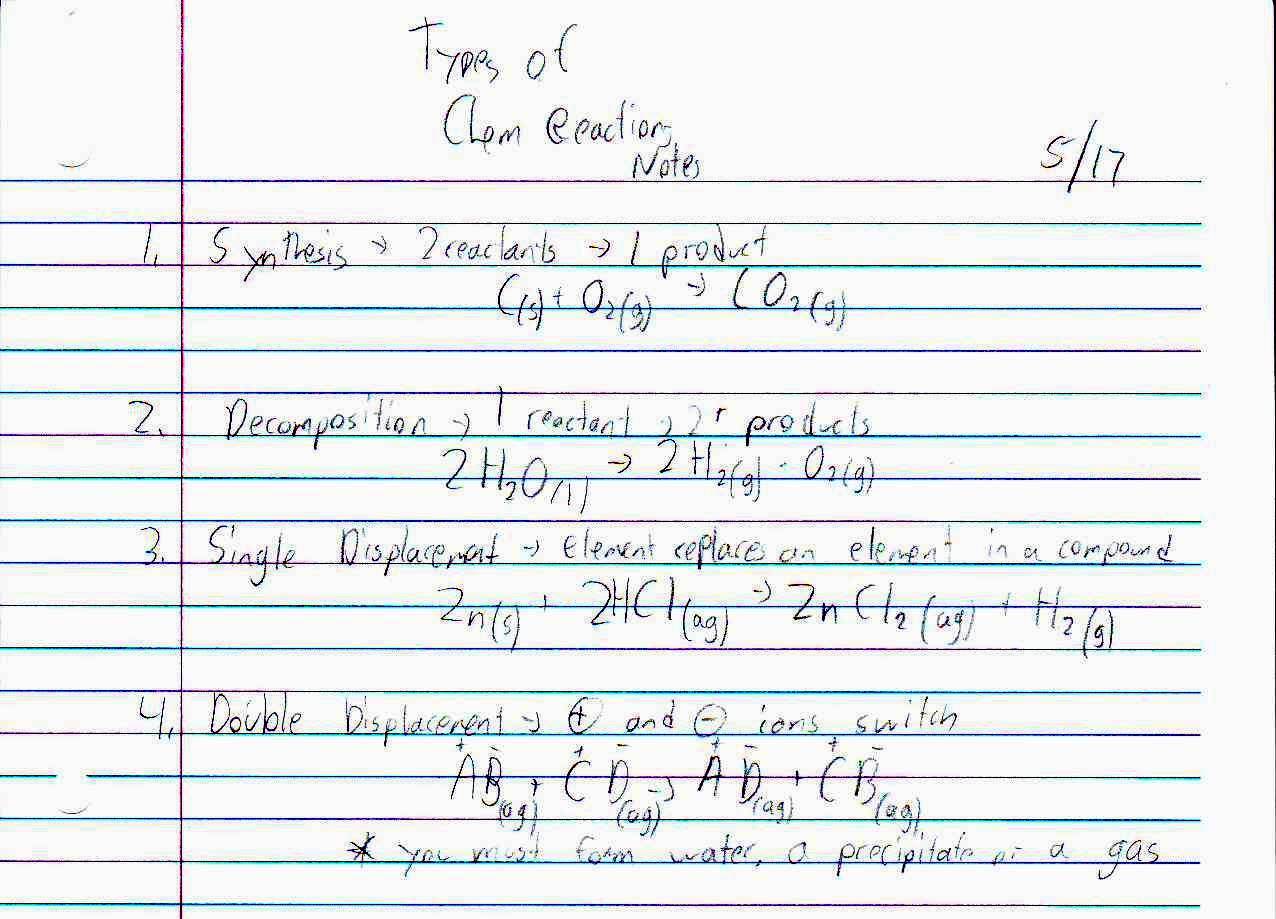 Types of
Chem Reactions
Notes
5/17
1. Synthesis → 2 reactants → 1 product
C(s) + O₂(g) → CO₂(g)
2. Decomposition → 1 reactant → 2⁺ products
2H₂O(l) → 2H₂(g) + O₂(g)
3. Single Displacement → Element replaces an element in a compound
Zn(s) + 2HCl(aq) → ZnCl₂(aq) + H₂(g)
4. Double Displacement → ⊕ and ⊖ ions switch
A⁺B⁻(aq) + C⁺D⁻(aq) → A⁺D⁻(aq) + C⁺B⁻(aq)
* you must form water, a precipitate or a gas